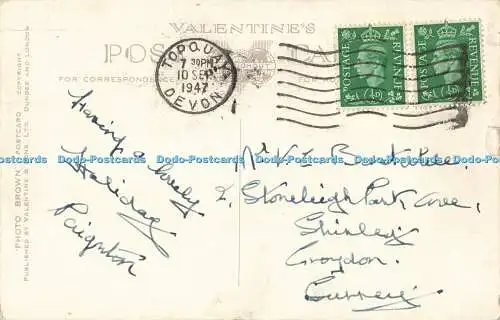 VALENTINE'S
POST CARD
FOR CORRESPONDENCE
TORQUAY
7 30PM
10 SEP
1947
DEVON
POSTAGE
REVENUE
½D
POSTAGE
REVENUE
½D
"PHOTO BROWN" POSTCARD COPYRIGHT
PUBLISHED BY VALENTINE & SONS LTD. DUNDEE AND LONDON
Having a lovely
Holiday
Paignton
Mr
2, Stoneleigh Park Ave,
Shirley
Croydon.
Surrey.
Dodo-Postcards Dodo-Postcards Dodo-Postcards Dodo-Postcards Dodo-Postcards Dodo-Postcards